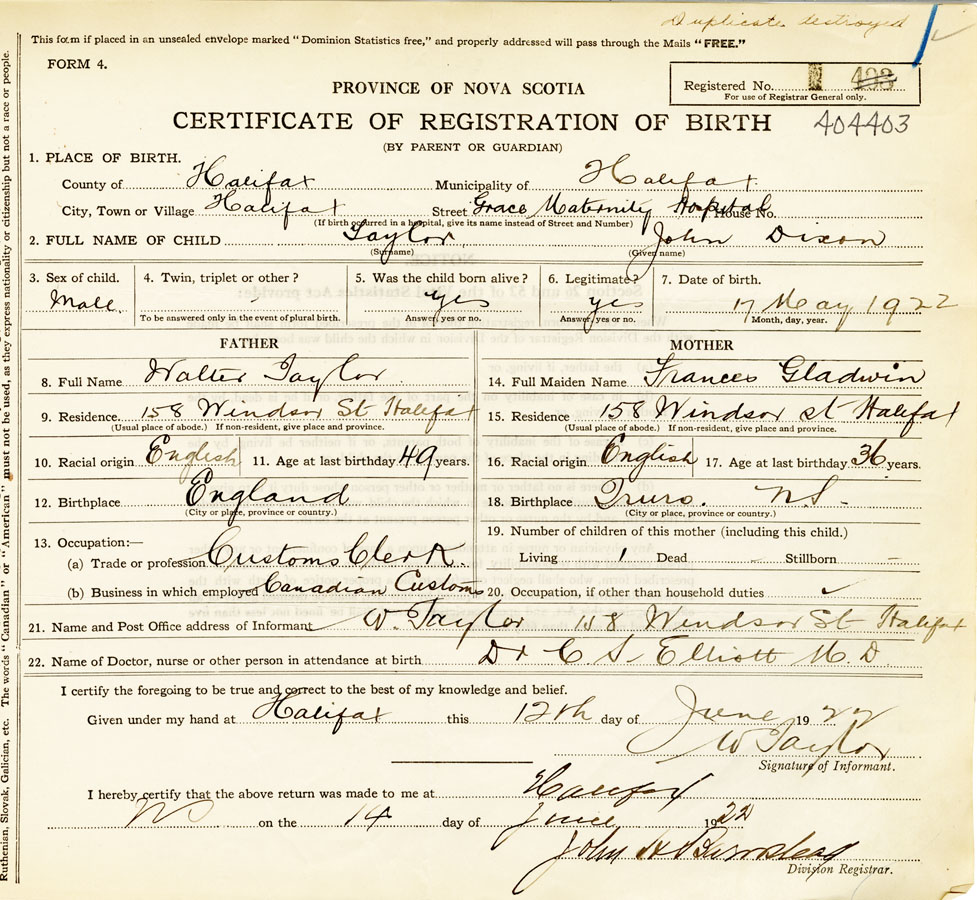 Duplicate destroyed
This form if placed in an unsealed envelope marked "Dominion Statistics free," and properly addressed will pass through the Mails "FREE."
FORM 4.
Registered No. 403
For use of Registrar General only.
PROVINCE OF NOVA SCOTIA
CERTIFICATE OF REGISTRATION OF BIRTH 404403
(BY PARENT OR GUARDIAN)
1. PLACE OF BIRTH.
County of Halifax Municipality of Halifax
City, Town or Village Halifax Street Grace Maternity Hospital House No.
(If birth occurred in a hospital, give its name instead of Street and Number)
2. FULL NAME OF CHILD Taylor John Dixon
(Surname) (Given name)
3. Sex of child. 4. Twin, triplet or other? 5. Was the child born alive? 6. Legitimate? 7. Date of birth.
Male - yes yes 17 May 1922
To be answered only in the event of plural birth. Answer, yes or no. Answer, yes or no. Month, day, year.
FATHER MOTHER
8. Full Name Walter Taylor 14. Full Maiden Name Frances Gladwin
9. Residence 158 Windsor St Halifax 15. Residence 158 Windsor st Halifax
(Usual place of abode.) If non-resident, give place and province. (Usual place of abode.) If non-resident, give place and province.
10. Racial origin English 11. Age at last birthday 49 years. 16. Racial origin English 17. Age at last birthday 36 years.
12. Birthplace England 18. Birthplace Truro. N.S-
(City or place, province or country.) (City or place, province or country.)
13. Occupation:— 19. Number of children of this mother (including this child.)
(a) Trade or profession Customs Clerk Living 1 Dead - Stillborn -
(b) Business in which employed Canadian Customs 20. Occupation, if other than household duties ✓
21. Name and Post Office address of Informant W. Taylor 158 Windsor St Halifax
22. Name of Doctor, nurse or other person in attendance at birth Dr C S. Elliott M.D
I certify the foregoing to be true and correct to the best of my knowledge and belief.
Given under my hand at Halifax this 12th day of June 1922
W Taylor
Signature of Informant.
I hereby certify that the above return was made to me at Halifax
NS on the 14 day of June 1922
John H
Division Registrar.
Ruthenian, Slovak, Galician, etc. The words "Canadian" or "American" must not be used, as they express nationality or citizenship but not a race or people.